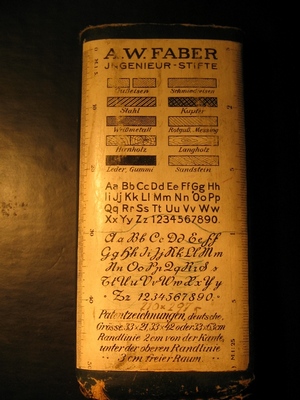 A.W. FABER
INGENIEUR-STIFTE
Gußeisen Schmiedeisen
Stahl Kupfer
Weißmetall Rotguß, Messing
Hirnholz Langholz
Leder, Gummi Sandstein
Aa Bb Cc Dd Ee Ff Gg Hh
Ii Jj Kk Ll Mm Nn Oo Pp
Qq Rr Ss Tt Uu Vv Ww
Xx Yy Zz 1234567890.
Aa Bb Cc Dd Ee Ff
Gg Hh Ii Jj Kk Ll Mm
Nn Oo Pp Qq Rr Ss
Tt Uu Vv Ww Xx Yy
Zz 1234567890.
Patentzeichnungen, deutsche,
Grösse 33×21 33×42 oder 33×63cm
Randlinie 2cm von der Kante,
unter der oberen Randlinie
3cm freier Raum